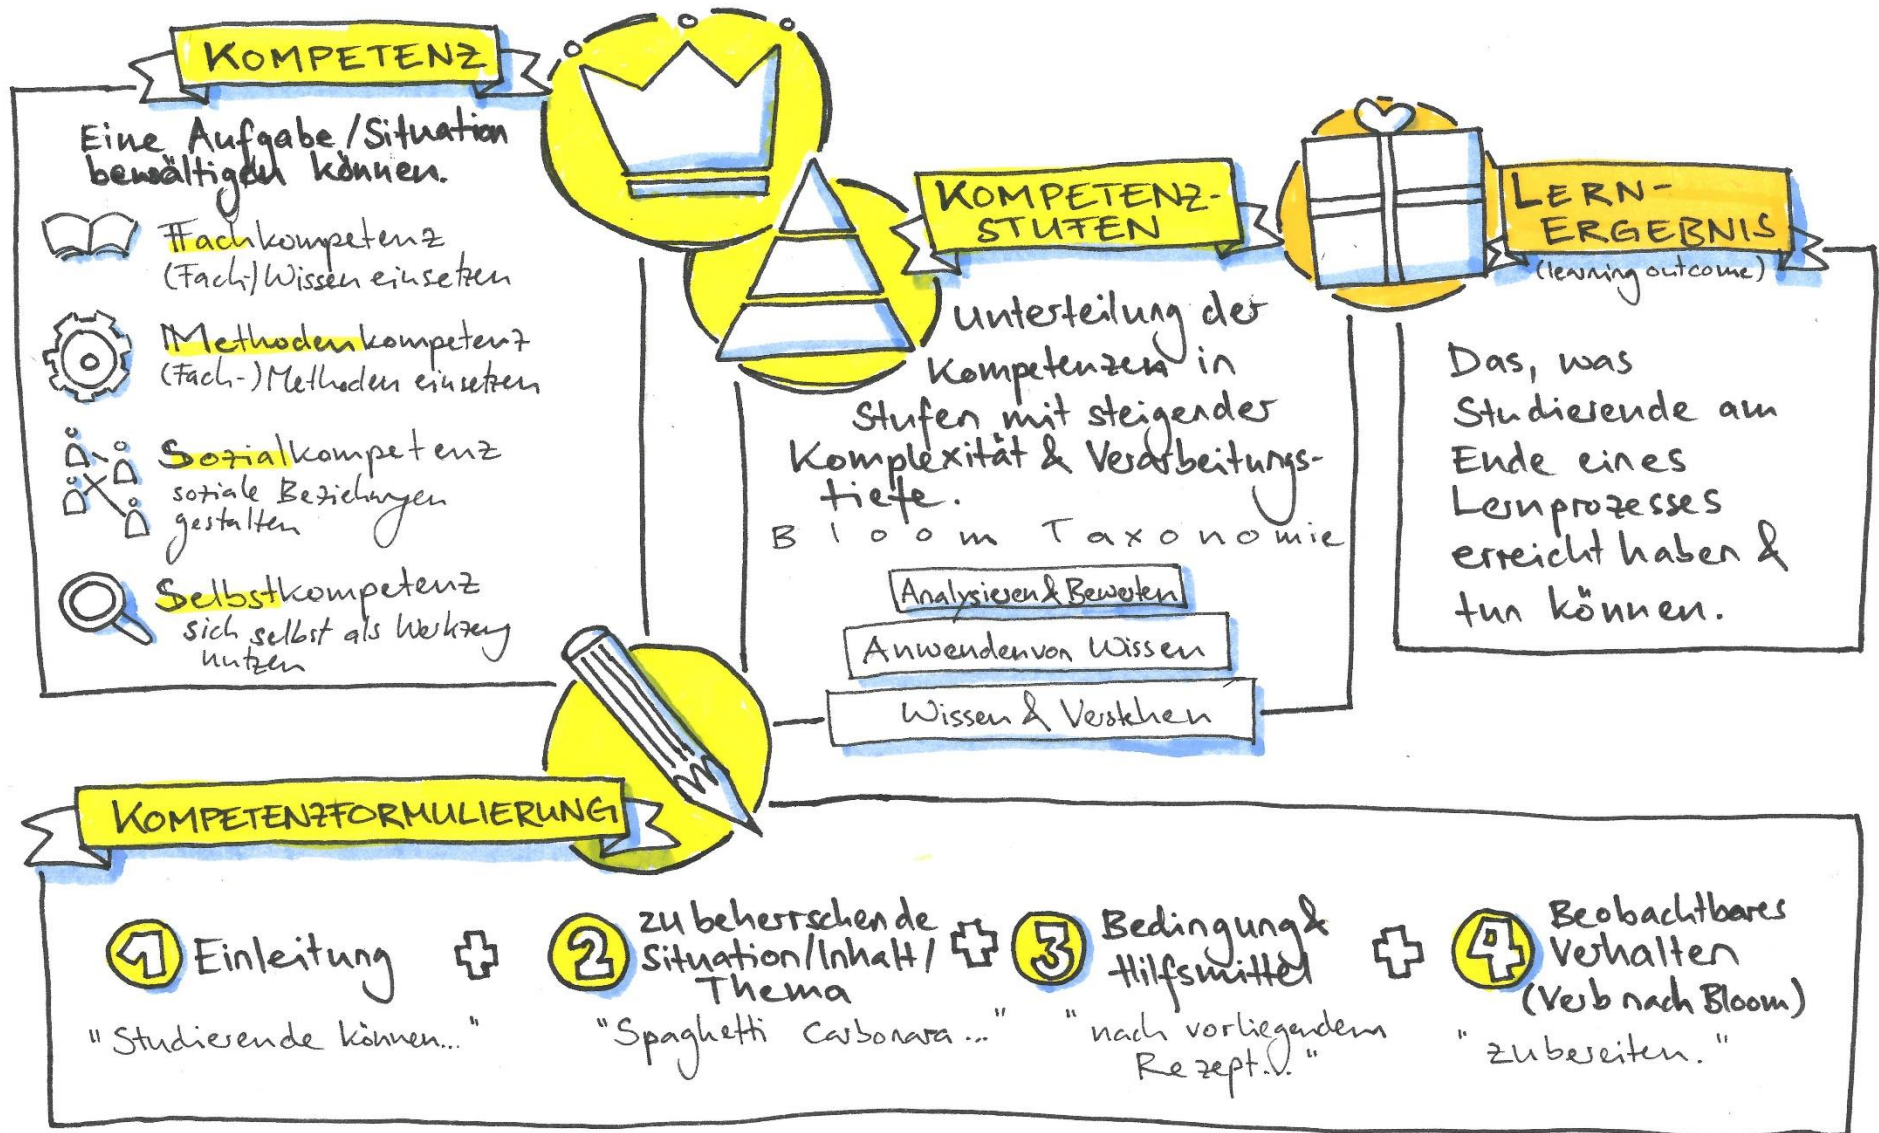 KOMPETENZ
Eine Aufgabe/Situation
bewältigen können.
Fachkompetenz
(Fach-)Wissen einsetzen
Methodenkompetenz
(Fach-)Methoden einsetzen
Sozialkompetenz
soziale Beziehungen
gestalten
Selbstkompetenz
sich selbst als Werkzeug
nutzen
KOMPETENZ-
STUFEN
Unterteilung der
Kompetenzen in
Stufen mit steigender
Komplexität & Verarbeitungs-
tiefe.
Bloom Taxonomie
Analysieren & Bewerten
Anwenden von Wissen
Wissen & Verstehen
LERN-
ERGEBNIS
(learning outcome)
Das, was
Studierende am
Ende eines
Lernprozesses
erreicht haben &
tun können.
KOMPETENZFORMULIERUNG
1 Einleitung
"Studierende können..."
+
2 zu beherrschende
Situation/Inhalt/
Thema
"Spaghetti Carbonara..."
+
3 Bedingung &
Hilfsmittel
"nach vorliegendem
Rezept..."
+
4 Beobachtbares
Verhalten
(Verb nach Bloom)
"zubereiten."